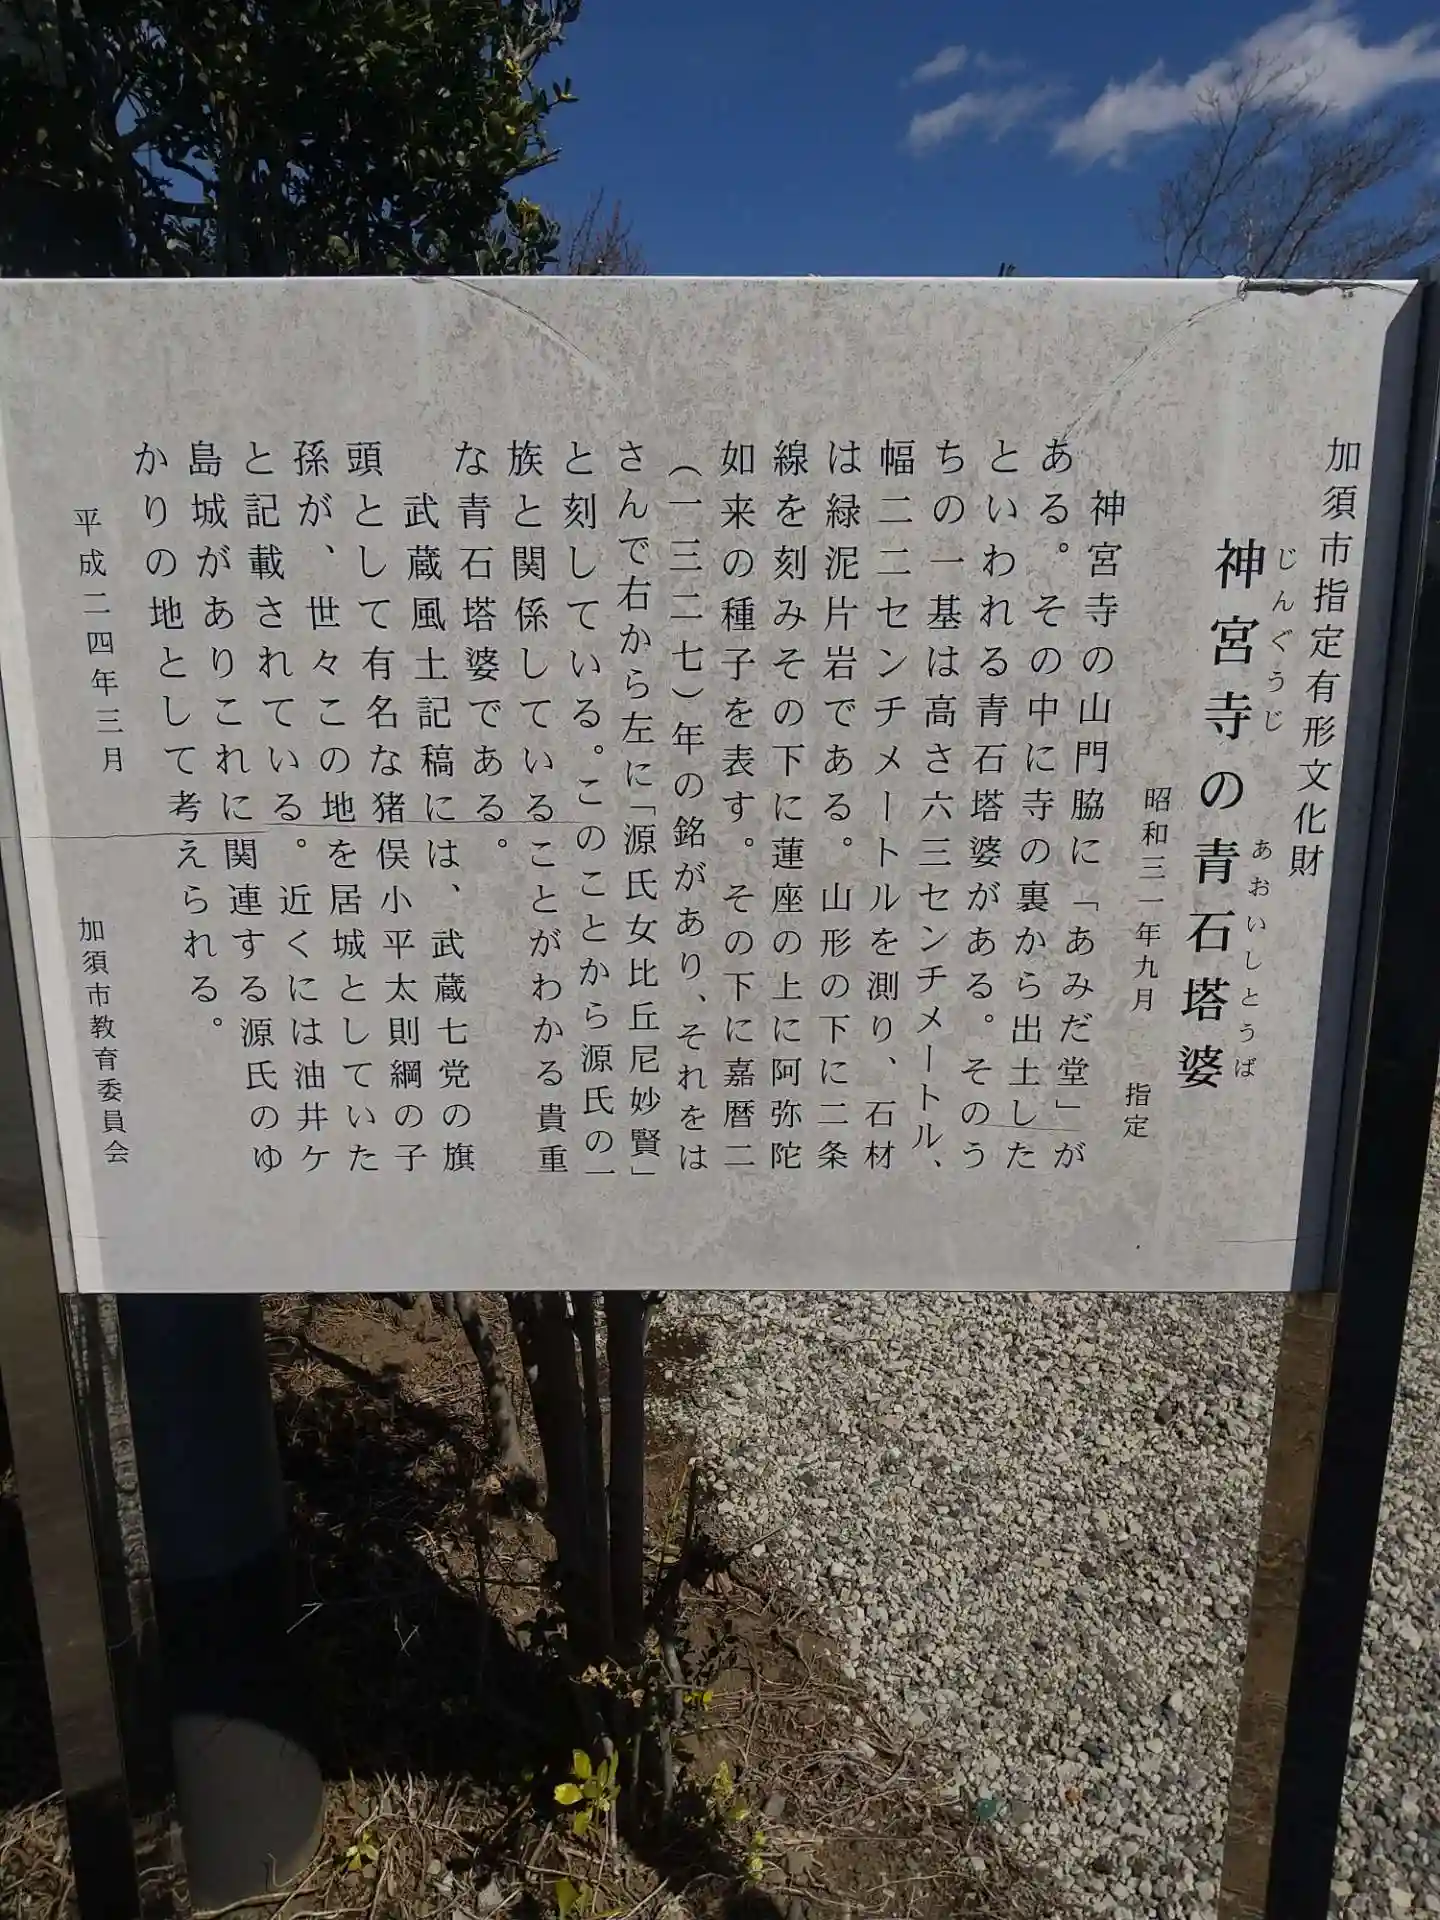 加須市指定有形文化財
神宮寺の青石塔婆
じんぐうじ
あおいしとうば
昭和三一年九月 指定
神宮寺の山門脇に「あみだ堂」が
ある。その中に寺の裏から出土した
といわれる青石塔婆がある。そのう
ちの一基は高さ六三センチメートル、
幅二二センチメートルを測り、石材
は緑泥片岩である。山形の下に二条
線を刻みその下に蓮座の上に阿弥陀
如来の種子を表す。その下に嘉暦二
(一三二七)年の銘があり、それをは
さんで右から左に「源氏女比丘尼妙賢」
と刻している。このことから源氏の一
族と関係していることがわかる貴重
な青石塔婆である。
武蔵風土記稿には、武蔵七党の旗
頭として有名な猪俣小平太則綱の子
孫が、世々この地を居城としていた
と記載されている。近くには油井ケ
島城がありこれに関連する源氏のゆ
かりの地として考えられる。
平成二四年三月
加須市教育委員会